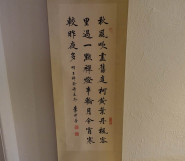 秋風吹盡舊庭柯黃葉丹楓客
裏過一點禪燈半輪月今宵寒
較昨夜多